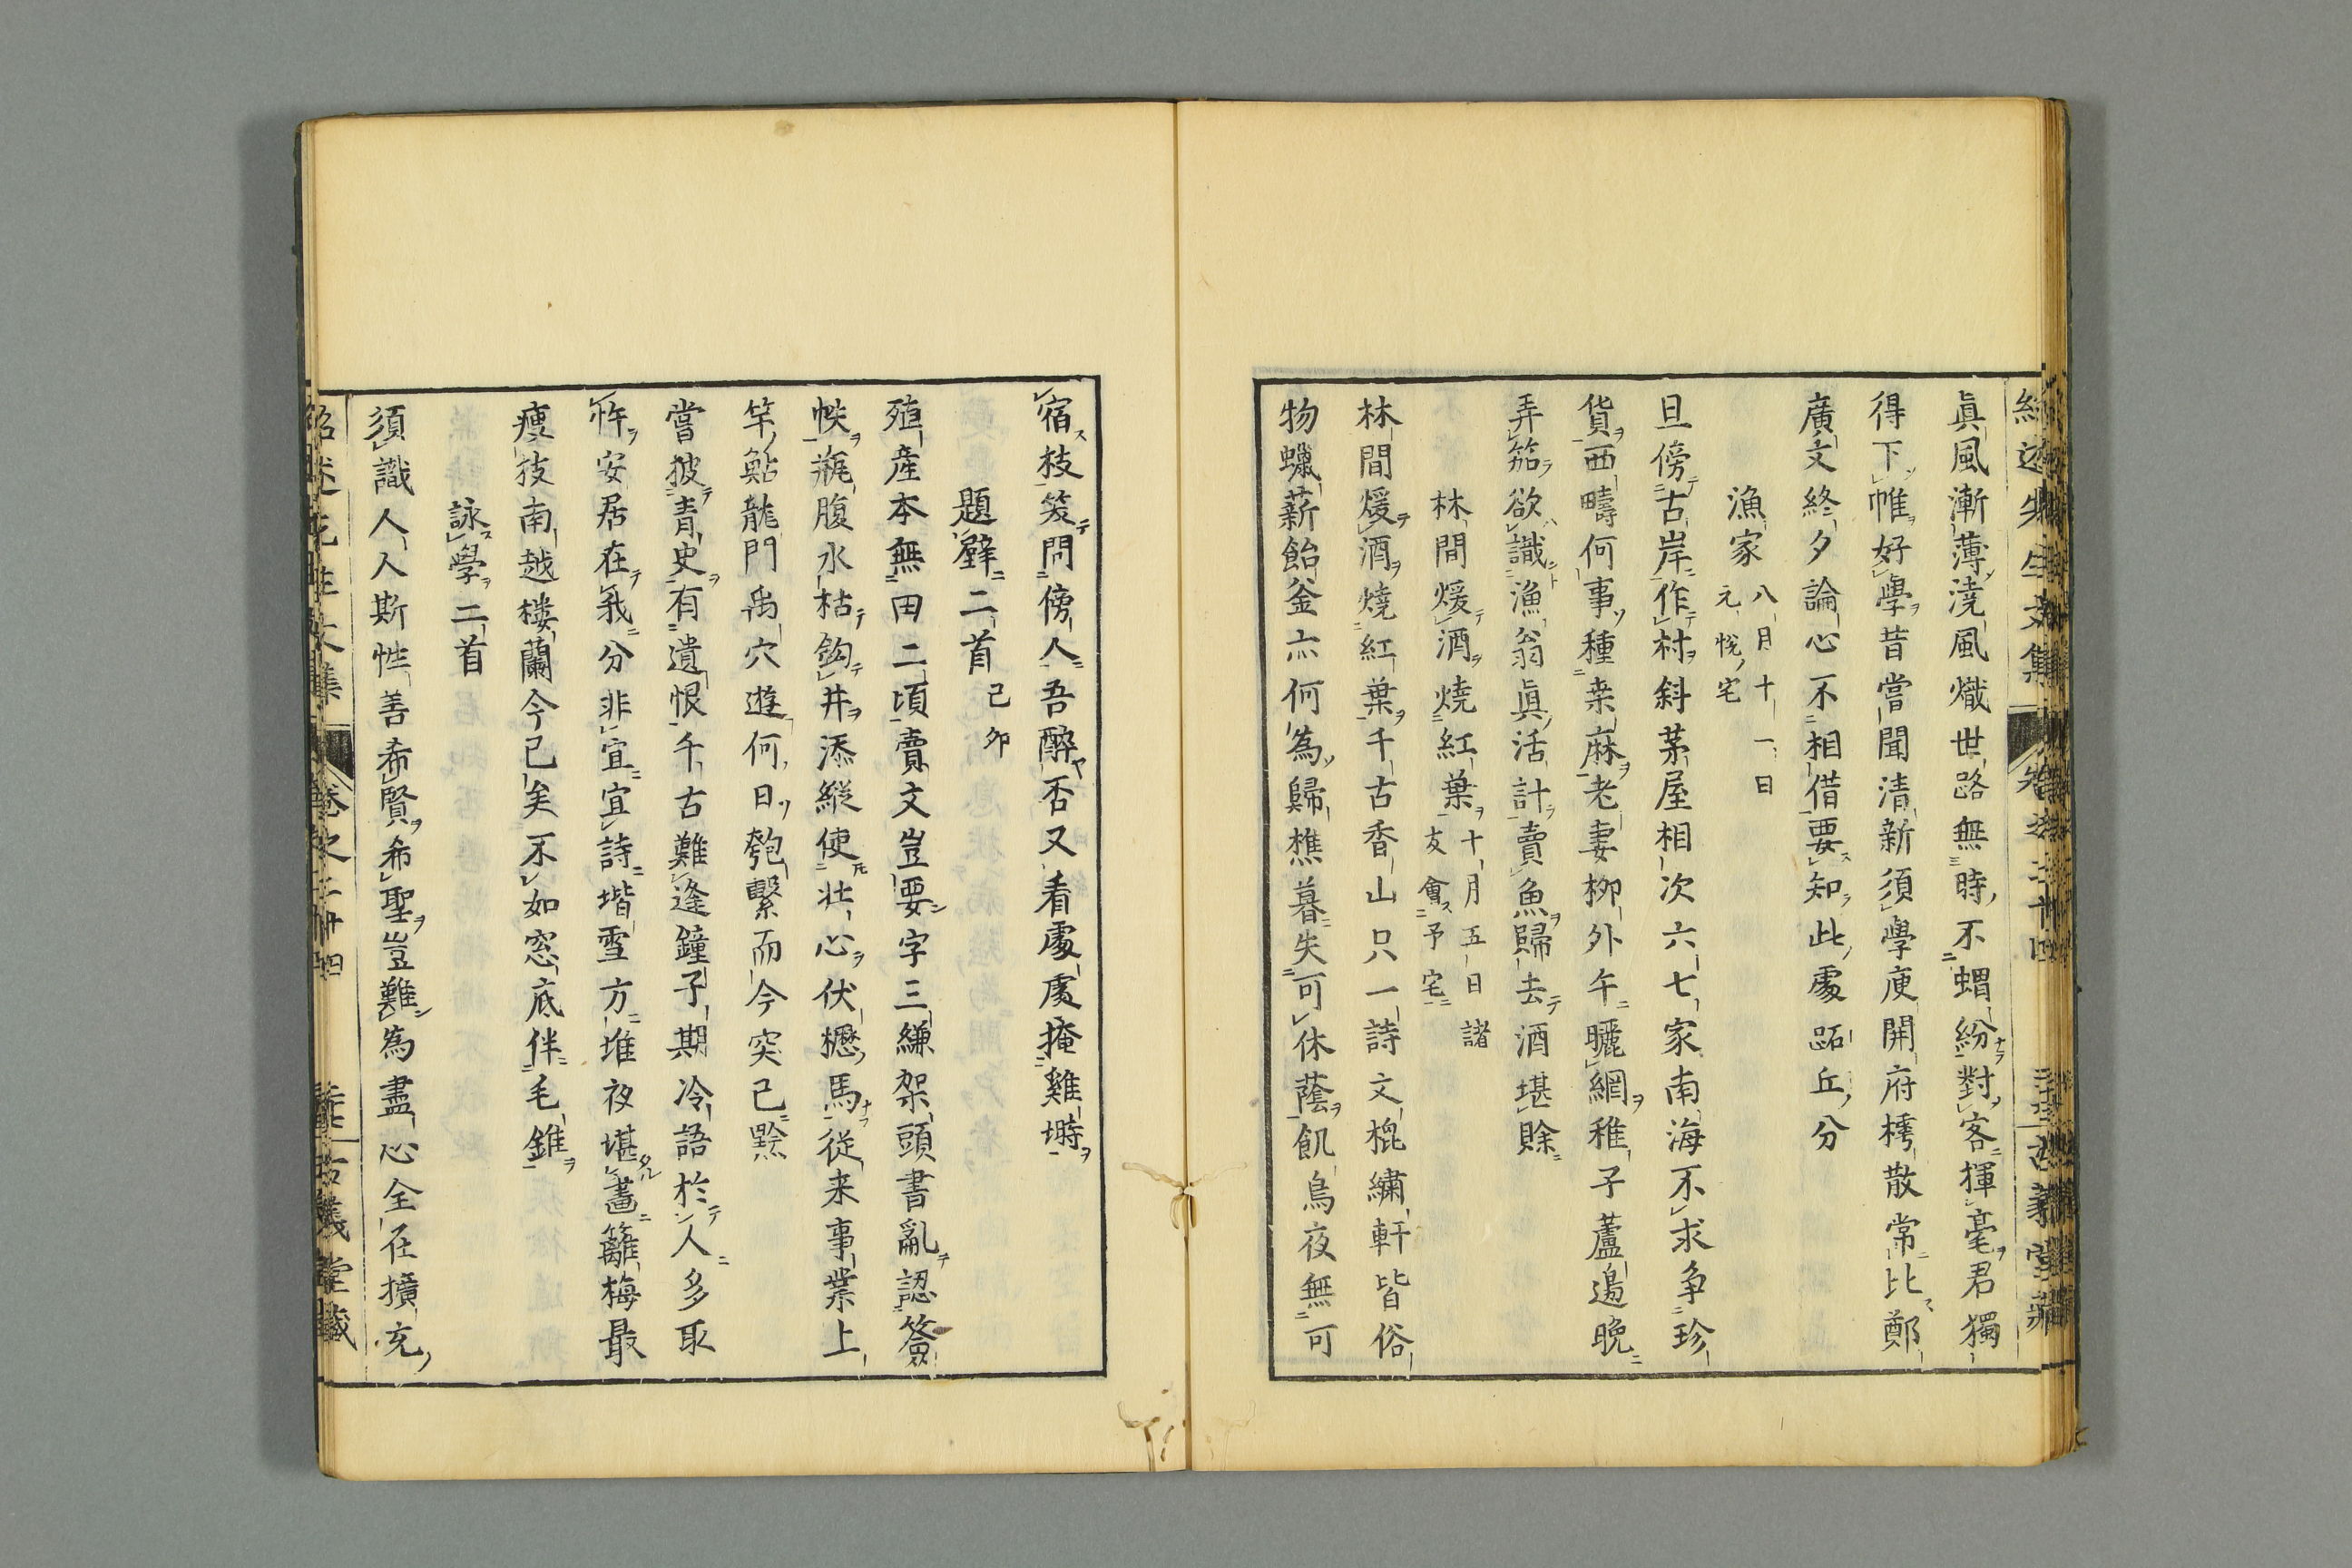 眞風漸薄澆風熾世路無時不蝟紛對客揮毫君獨
得下帷好學昔嘗聞清新須學庾開府樗散常比鄭
廣文終夕論心不相借要知此處跖丘分
漁家
八月十一日
元悅宅
旦傍古岸作村斜茅屋相次六七家南海不求争珍
貨西疇何事種桒麻老妻柳外午曬網稚子蘆邉晚
弄笳欲識漁翁眞活計賣魚歸去酒堪賖
林間煖酒燒紅葉
十月五日諸
友會予宅
林間煖酒燒紅葉千古香山只一詩文棍繡軒皆俗
物蠟薪飴釜亦何為歸樵暮失可休蔭飢烏夜無可
宿枝笑問傍人吾醉否又看處處掩雞塒
題壁二首
己卯
殖産本無田二頃賣文豈要字三縑架頭書亂認簽
帙瓶腹水枯鈎井添縱使壮心伏櫪馬從来事業上
竿鮎龍門禹穴遊何日匏繫而今突已黔
嘗披青史有遺恨千古難逢鐘子期冷語於人多取
忤安居在我分非宜宜詩堦雪方堆夜堪畵籬梅最
瘦枝南越楼蘭今已矣不如窓底伴毛錐
詠學二首
須識人人斯性善希賢希聖豈難為盡心全在擴充
紹述先生文集
卷之二十四
古義堂藏